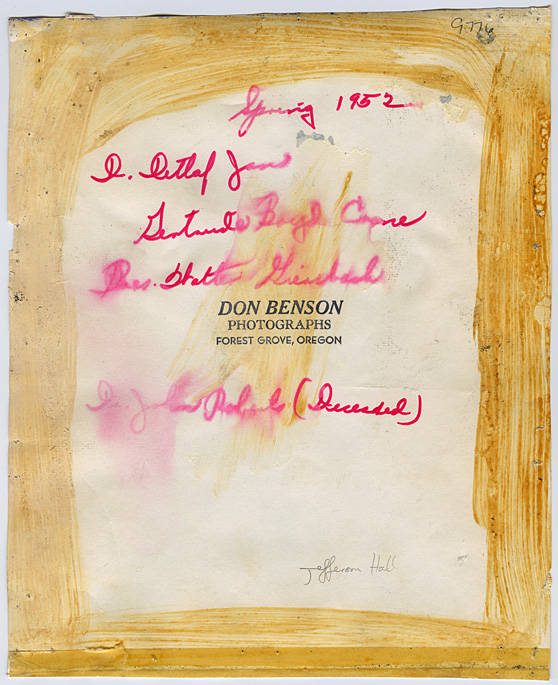 9.776
Spring 1952
D. Detlaf Jans
Gertrude Boyd Crane
Pres. Walter Giersbach
DON BENSON
PHOTOGRAPHS
FOREST GROVE, OREGON
Dr. John Roberts (Deceased)
Jefferson Hall